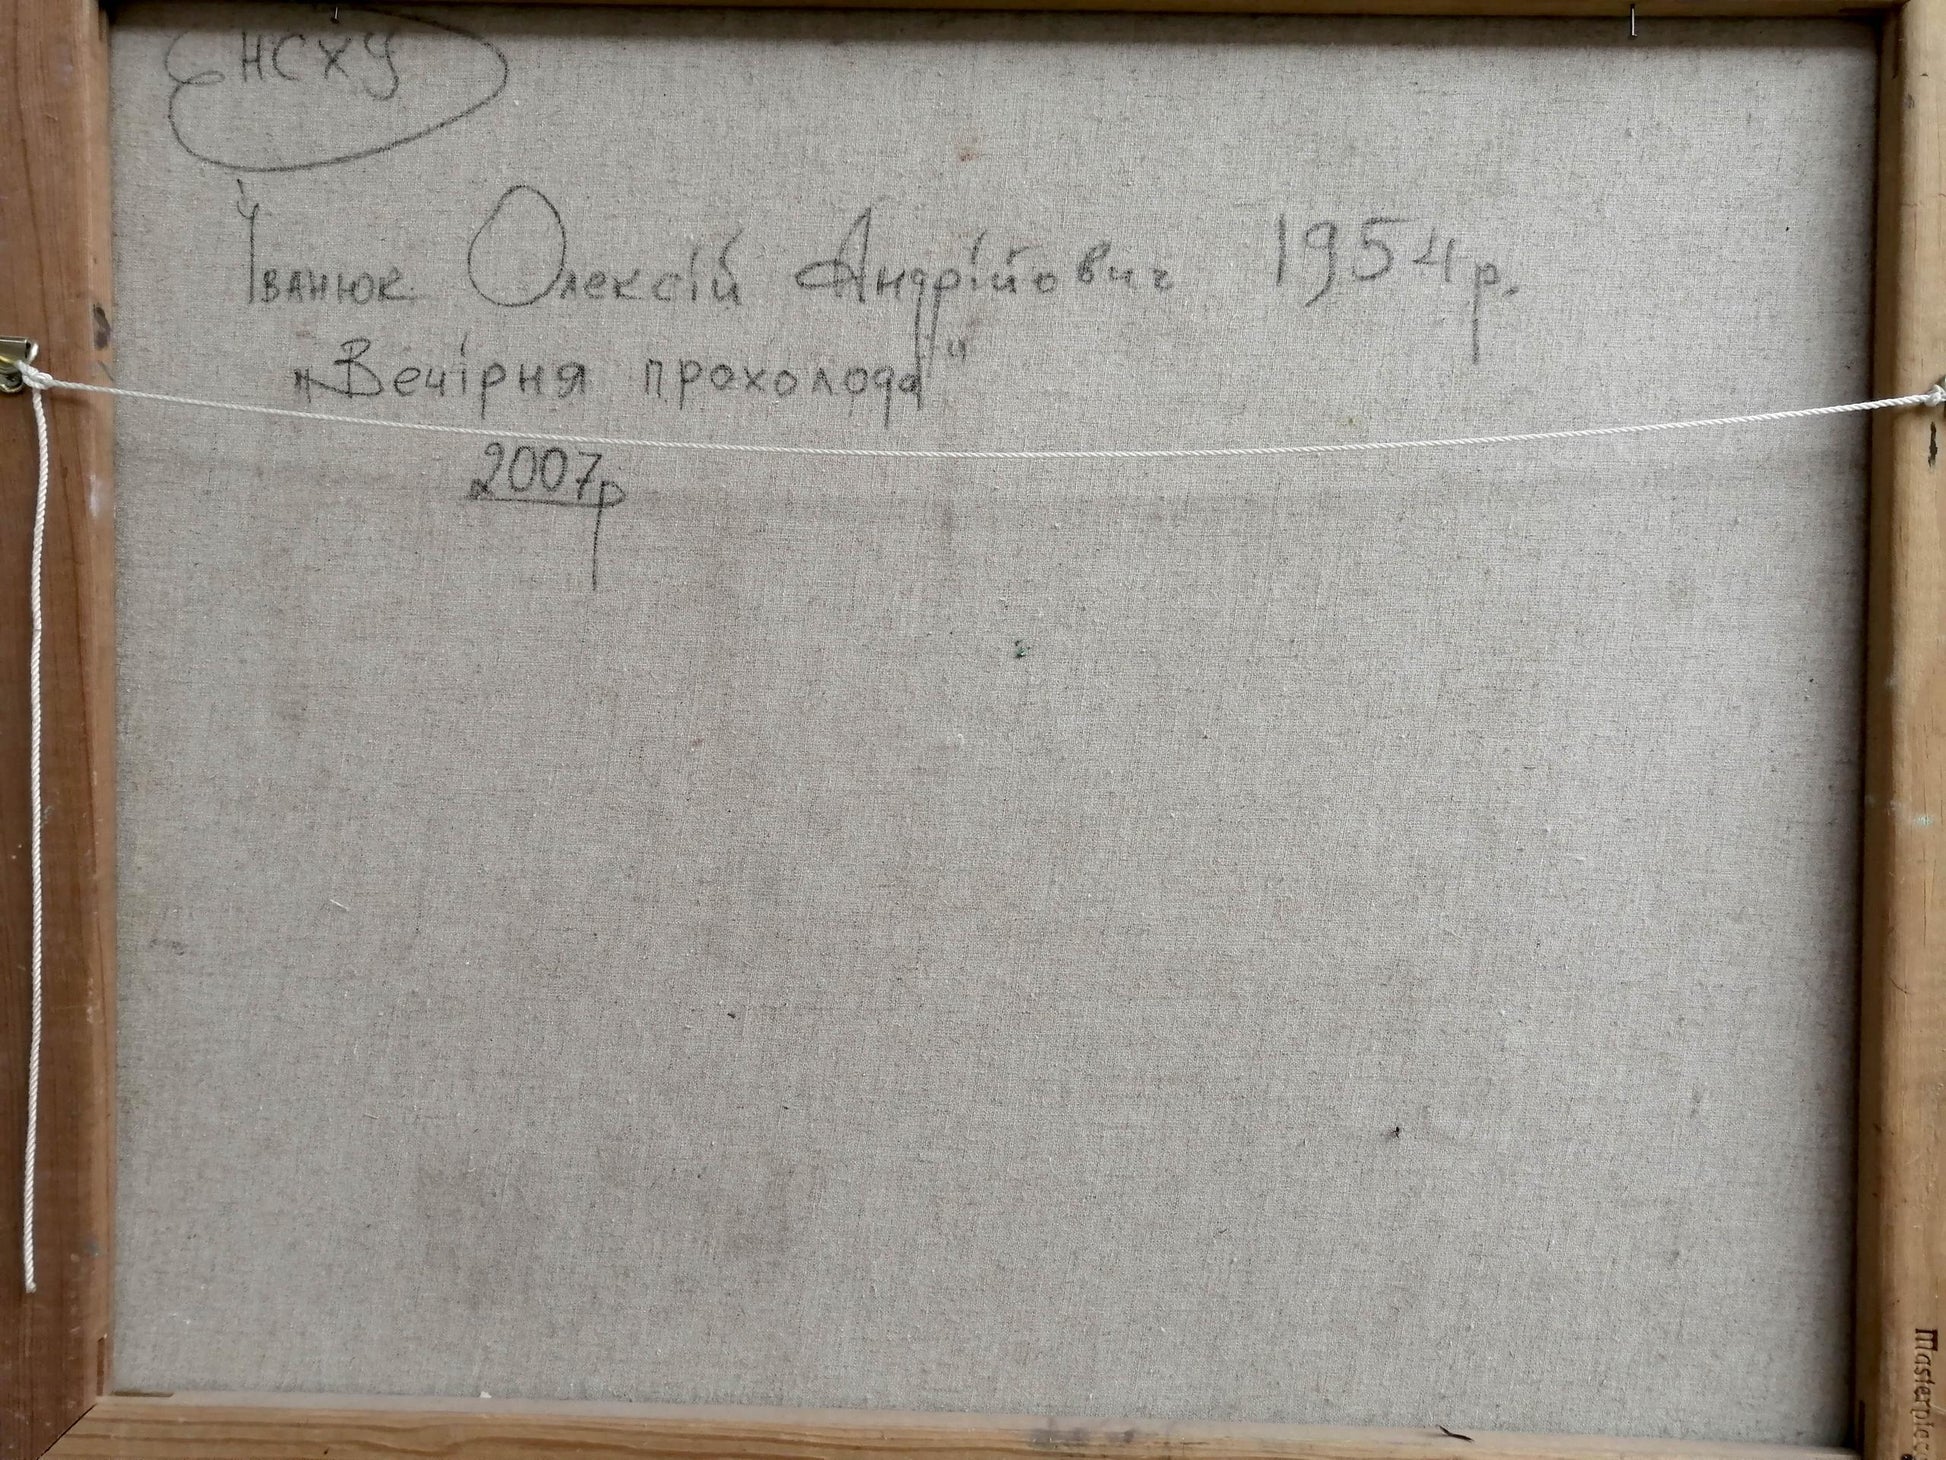 НСХУ
Іванюк Олексій Андрійович 1954р.
„Вечірня прохолода"
2007р
Masterpiece